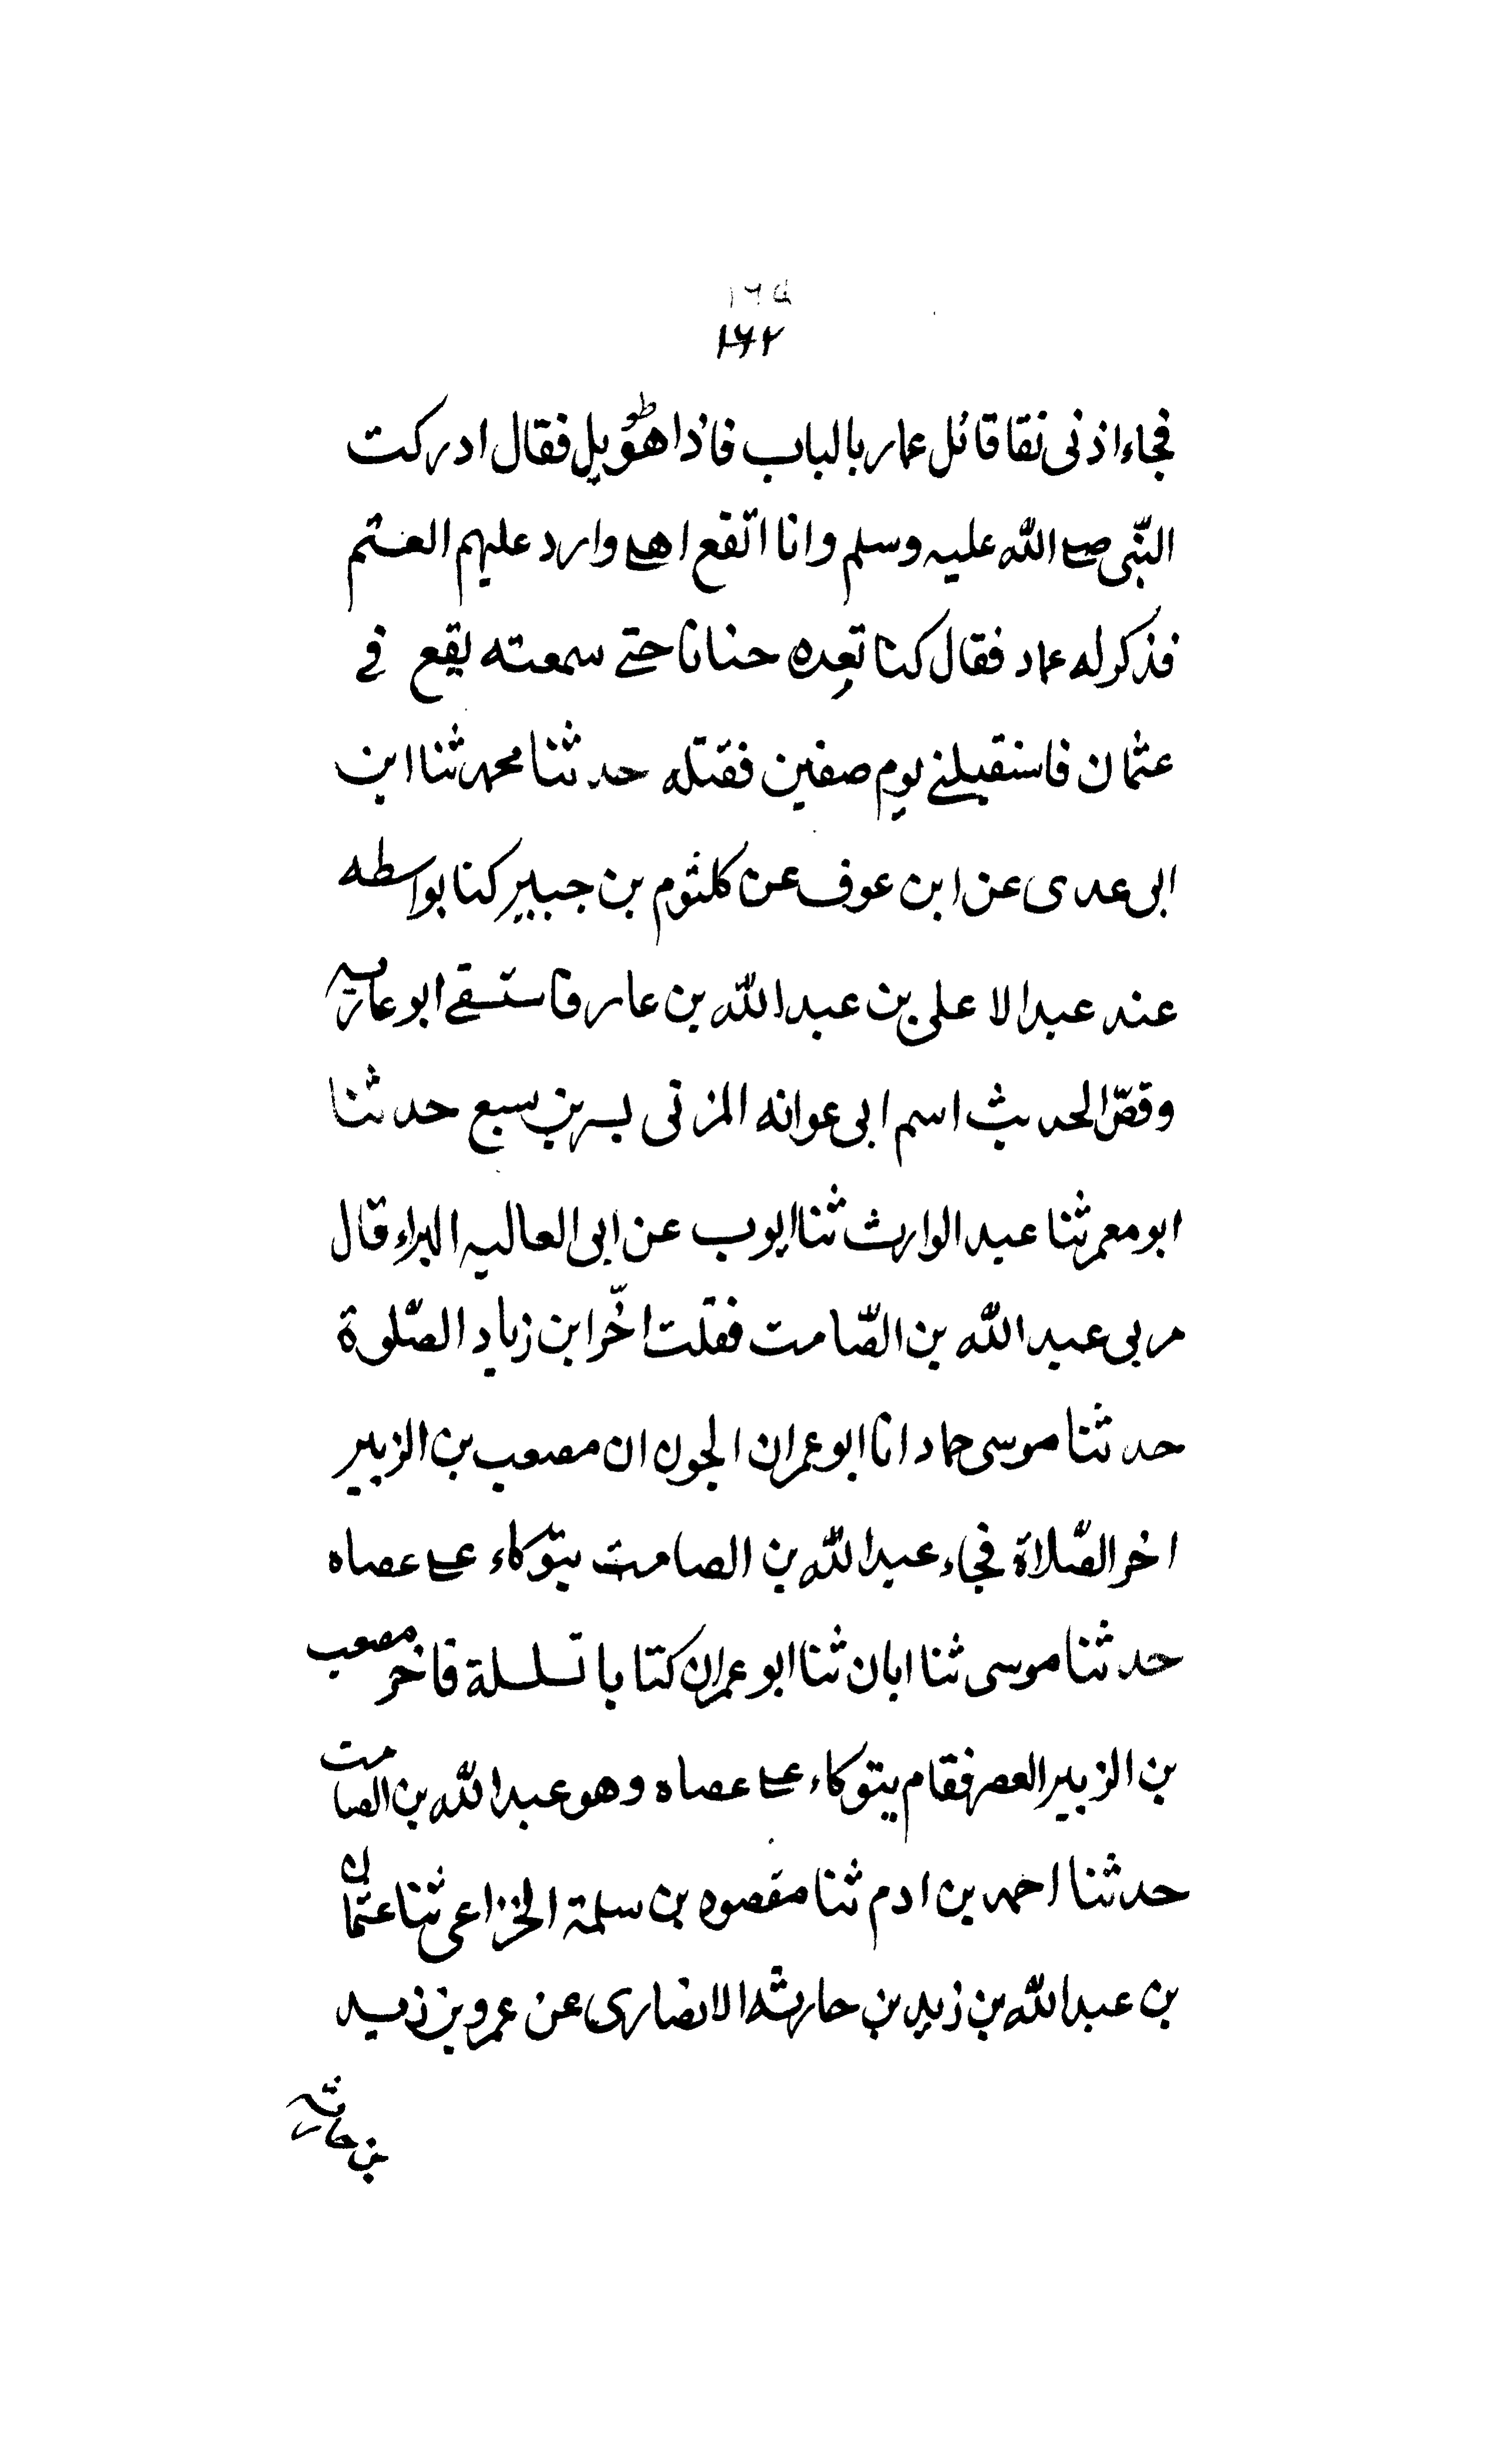 ١٦٥
١٦٢
فجاء اذنى نقا قائل عمار بالباب فاذا هو طويل فقال ادركت
النّبى صلے الله عليه وسلم وانا اتفع اهلے وارد عليهم الغنم
فذكر له عماد فقال كنا تعده حنانا حتے سمعته يقع فى
عثمان فاستقبلنے يوم صفين فقتله حدثنا محمد ثنا ابن
ابى عدى عن ابن عوف عن كلثوم بن جبير كنا بواسطه
عند عبد الاعلى بن عبد الله بن عار فاستسقے ابو عازيه
وقصّ الحديث اسم ابى عوانه المزنى يسربن سبع حدثنا
ابو معمر ثنا عبد الوارث ثنا ايوب عن ابى العاليه البراء قال
مر بى عبد الله بن الصّامت فقلت اخّر ابن زياد الصّلوة
حدثنا موسى حماد انا ابو عمران الجون ان مصعب بن الزبير
اخر الصّلاة فجاء عبد الله بن الصامت يتوكاء علے عصاه
حدثنا موسى ثنا ابان ثنا ابو عمران كتا با تسلسلة فاخر مصعب
بن الزبير العصر فقام يتوكاء علے عصاه وهو عبد الله بن الصامت
حدثنا احمد بن ادم ثنا مقصوه بن سلمة الخزاعى ثنا عثمان
بن عبد الله بن زيد بن حارثه الانصارى عن عمرو بن زيد
بن حارثه